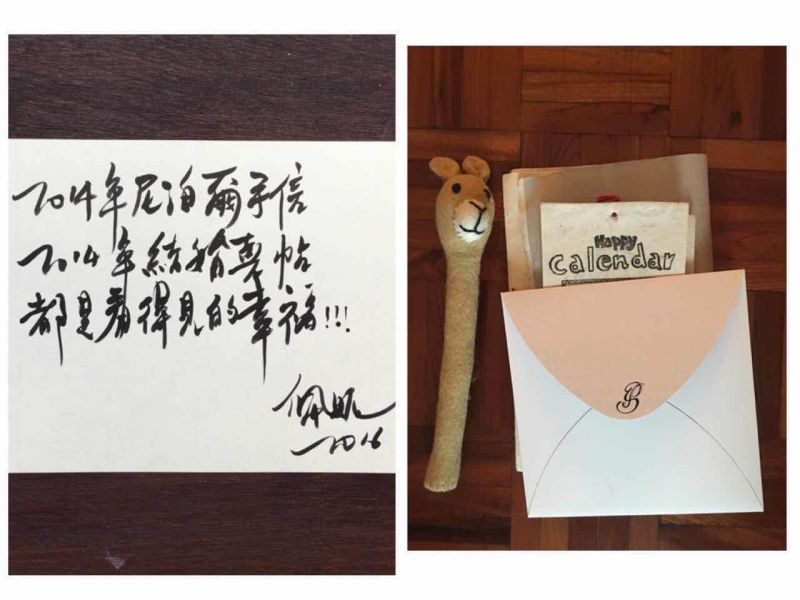 2014年尼泊爾手信
2014年結婚喜帖
都是看得見的幸福!!!
2016
Happy
Calendar